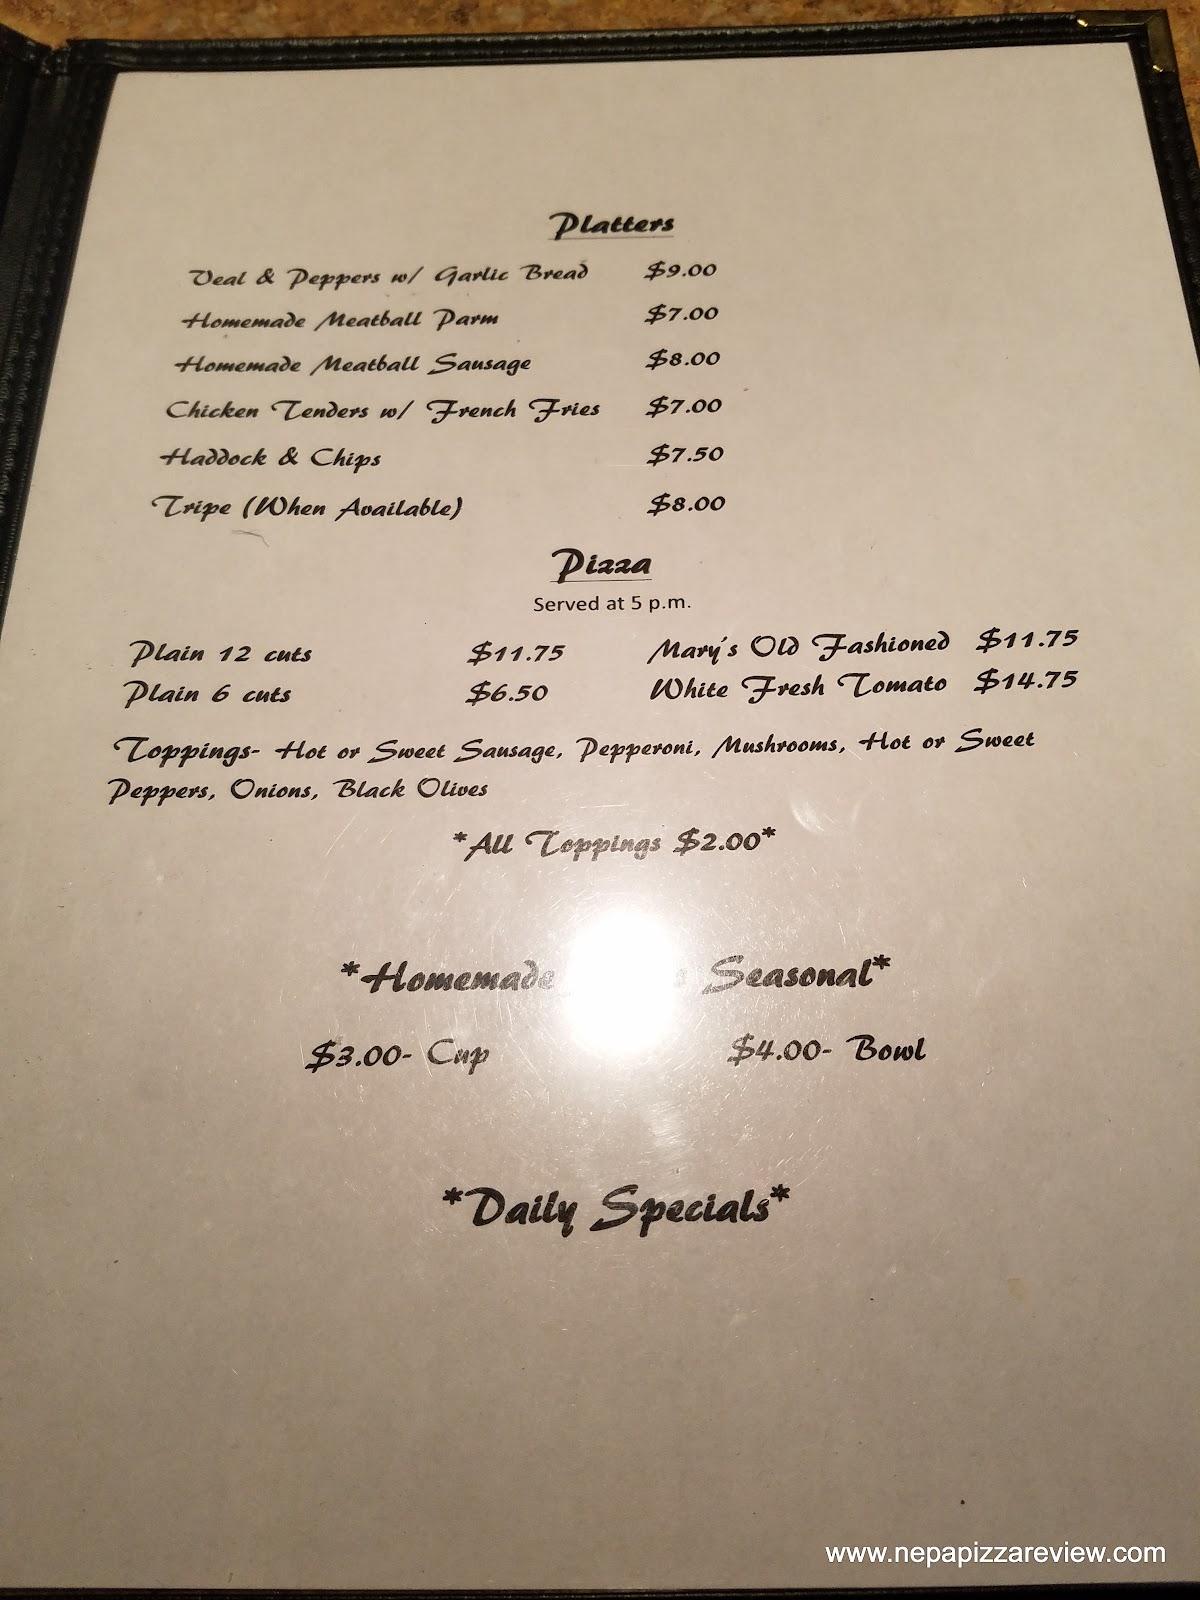 Platters
Veal & Peppers w/ Garlic Bread $9.00
Homemade Meatball Parm $7.00
Homemade Meatball Sausage $8.00
Chicken Tenders w/ French Fries $7.00
Haddock & Chips $7.50
Tripe (When Available) $8.00
Pizza
Served at 5 p.m.
Plain 12 cuts $11.75 Mary's Old Fashioned $11.75
Plain 6 cuts $6.50 White Fresh Tomato $14.75
Toppings- Hot or Sweet Sausage, Pepperoni, Mushrooms, Hot or Sweet
Peppers, Onions, Black Olives
*All Toppings $2.00*
*Homemade Seasonal*
$3.00- Cup $4.00- Bowl
*Daily Specials*
www.nepapizzareview.com